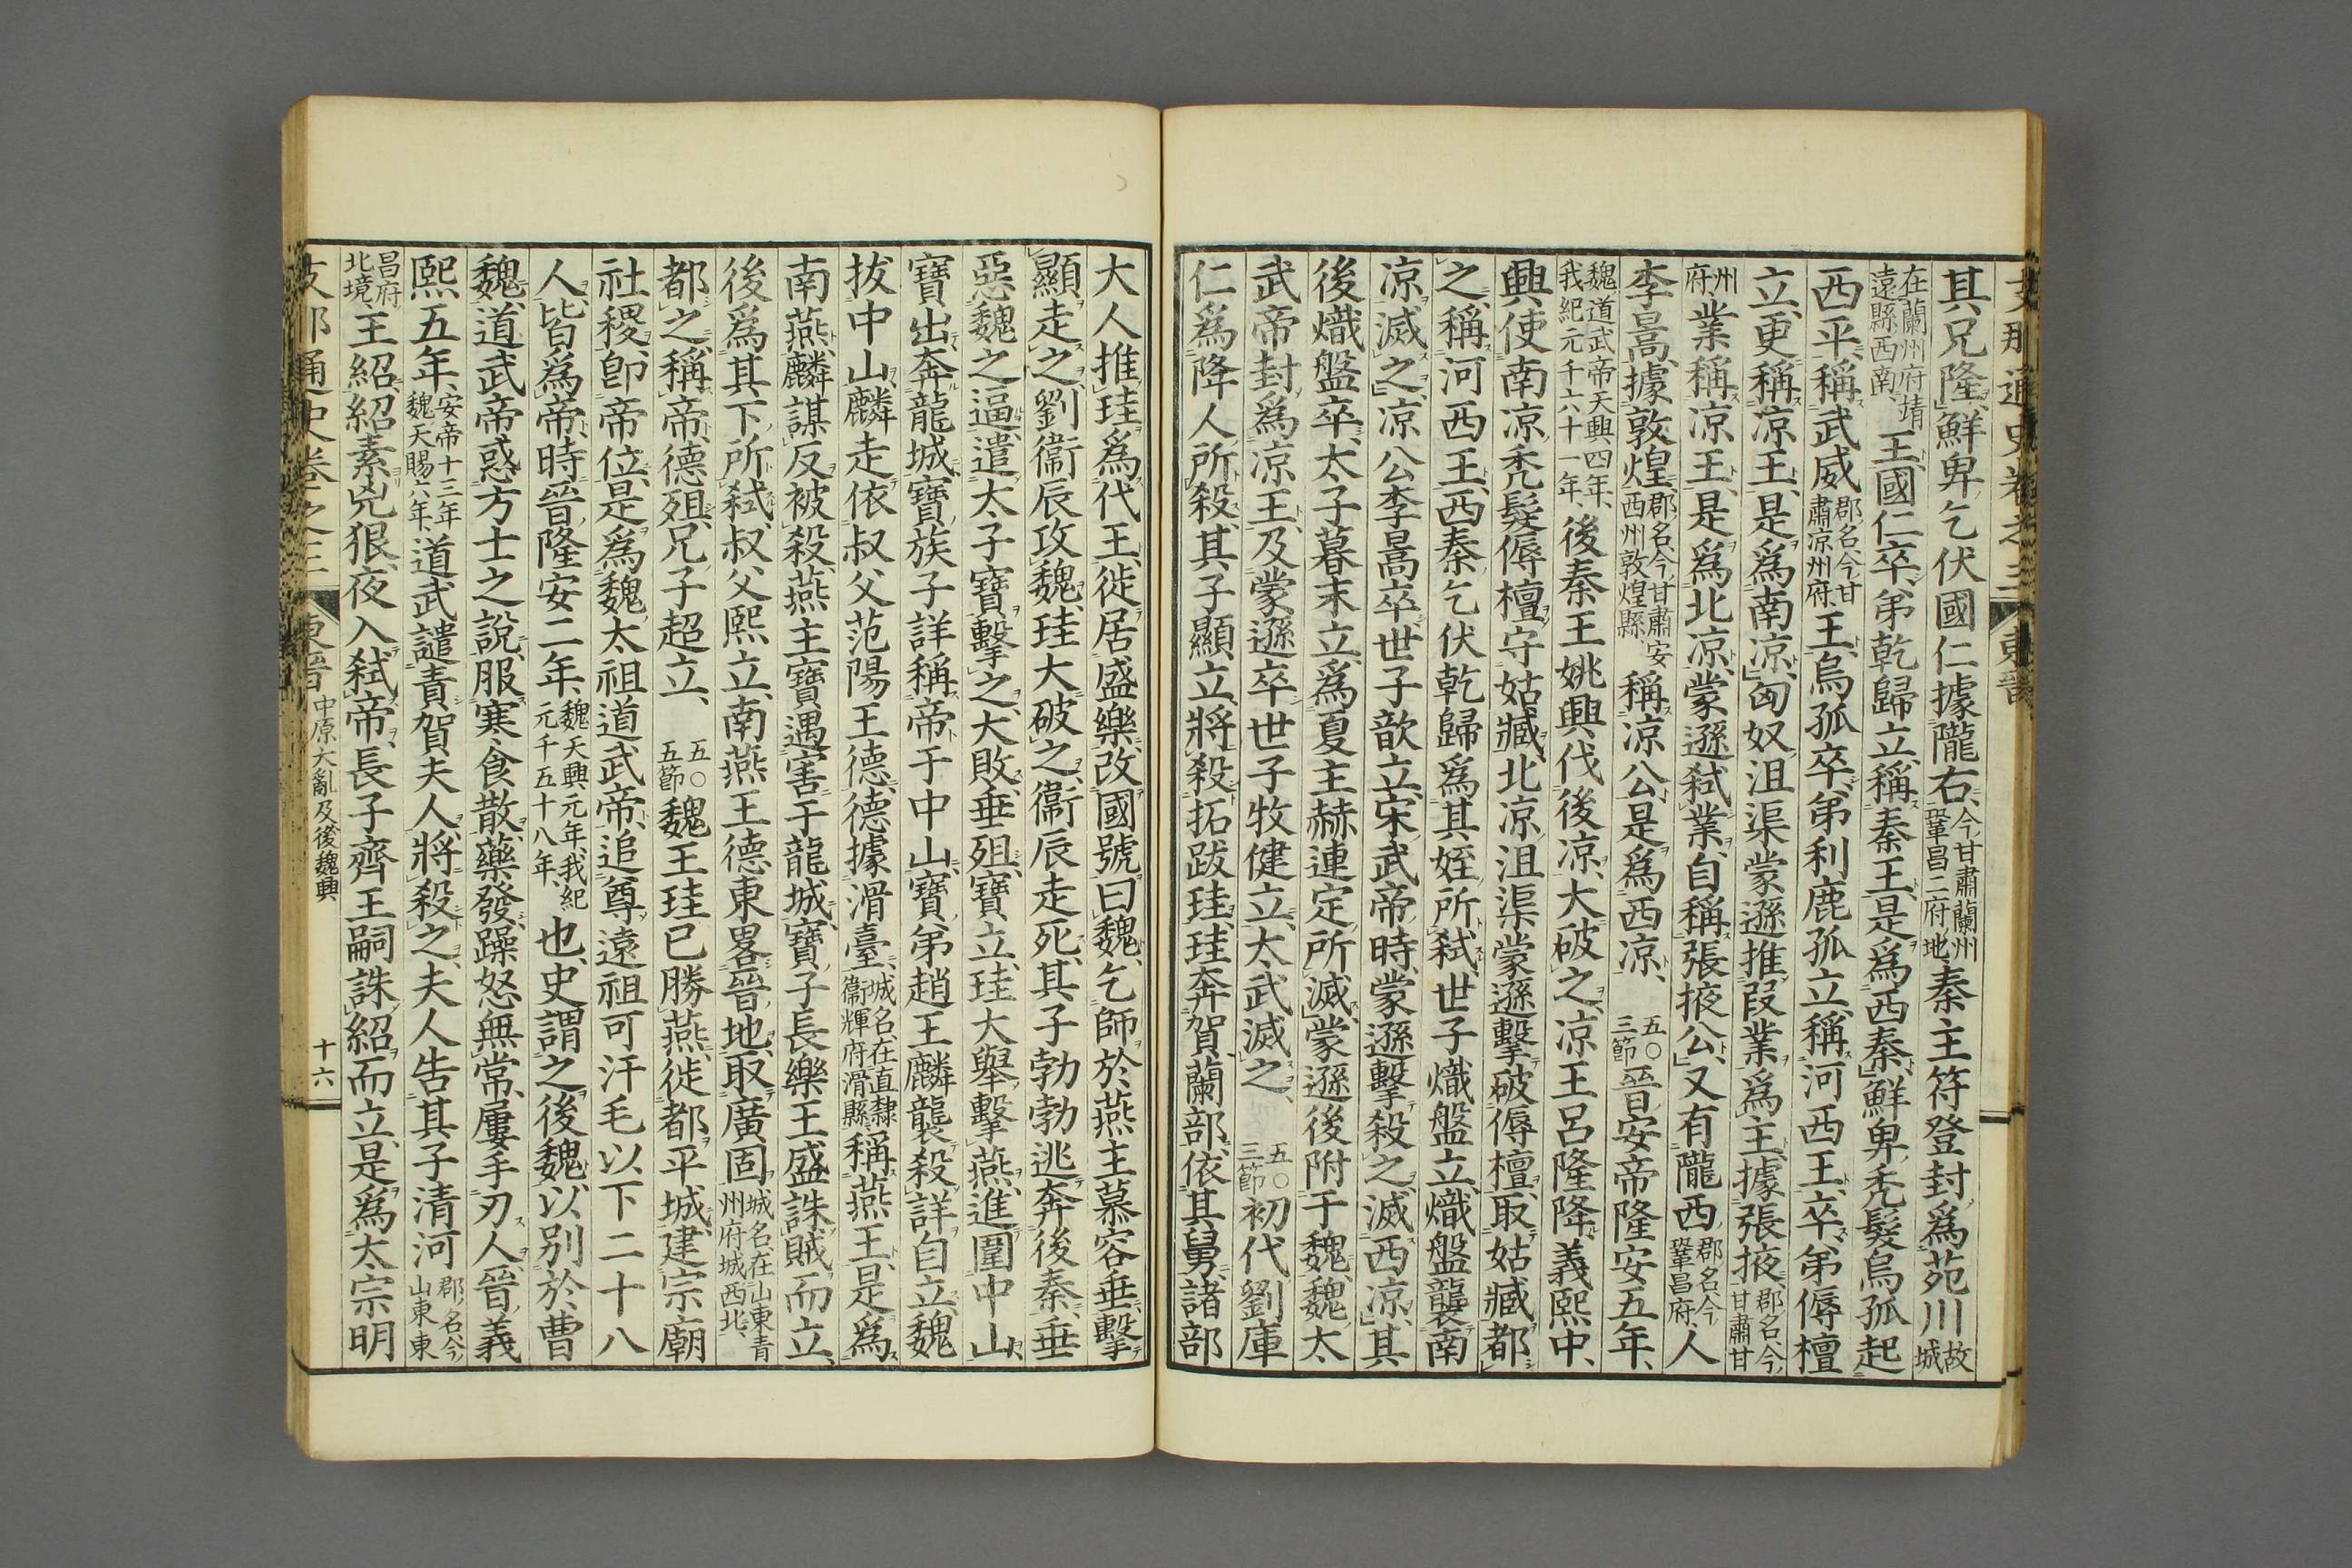 支那通史卷之三 東晉
其兄隆、鮮卑乞伏國仁據隴右、今甘肅蘭州鞏昌二府地、秦主符登封爲苑川故城
在蘭州府靖遠縣西南、王、國仁卒、弟乾歸立、稱秦王、是爲西秦、鮮卑禿髮烏孤起
西平、稱武威郡名、今甘肅凉州府、王、烏孤卒、弟利鹿孤立、稱河西王、卒、弟傉檀
立、更稱凉王、是爲南凉、匈奴沮渠蒙遜推段業爲主、據張掖、郡名、今甘肅甘
州府、業稱凉王、是爲北凉、蒙遜弑業、自稱張掖公、又有隴西郡名、今鞏昌府、人
李暠、據敦煌郡名、今甘肅安西州敦煌縣、稱凉公、是爲西凉、五〇三節晉安帝隆安五年、
魏道武帝天興四年、我紀元千六十一年、後秦王姚興伐後凉、大破之、凉王呂隆降、義熙中、
興使南凉禿髮傉檀守姑臧、北凉沮渠蒙遜擊破傉檀、取姑臧都
之、稱河西王、西秦乞伏乾歸爲其姪所弑、世子熾盤立、熾盤襲南
凉滅之、凉公李暠卒、世子歆立、宋武帝時、蒙遜擊殺之、滅西凉、其
後熾盤卒、太子暮末立、爲夏主赫連定所滅、蒙遜後附于魏、魏太
武帝封爲凉王、及蒙遜卒、世子牧健立、太武滅之、五〇三節初代劉庫
仁爲降人所殺、其子顯立、將殺拓跋珪、珪奔賀蘭部、依其舅、諸部
大人推珪爲代王、徙居盛樂、改國號曰魏、乞師於燕主慕容垂、擊
顯走之、劉衞辰攻魏、珪大破之、衞辰走死、其子勃勃逃奔後秦、垂
惡魏之逼、遣太子寶擊之、大敗、垂殂、寶立、珪大擧擊燕、進圍中山、
寶出奔龍城、寶族子詳稱帝于中山、寶弟趙王麟襲殺詳自立、魏
拔中山、麟走依叔父范陽王德、德據滑臺、城名、在直隸衞輝府滑縣、稱燕王、是爲
南燕、麟謀反被殺、燕主寶遇害于龍城、寶子長樂王盛誅賊而立、
後爲其下所弑、叔父熙立、南燕王德東畧晉地、取廣固城名、在山東青州府城西北、
都之、稱帝、德殂、兄子超立、五〇五節魏王珪已勝燕、徙都平城、建宗廟
社稷、卽帝位、是爲魏太祖道武帝、追尊遠祖可汗毛以下二十八
人、皆爲帝、時晉隆安二年、魏天興元年、我紀元千五十八年、也、史謂之後魏、以別於曹
魏、道武帝惑方士之說、服寒食散、藥發、躁怒無常、屢手刃人、晉義
熙五年、安帝十三年、魏天賜六年、道武譴責賀夫人、將殺之、夫人告其子淸河郡名、今山東東
昌府北境、王紹、紹素兇狠、夜入弑帝、長子齊王嗣誅紹而立、是爲太宗明
支那通史卷之三 東晉 中原大亂及後魏興 十六